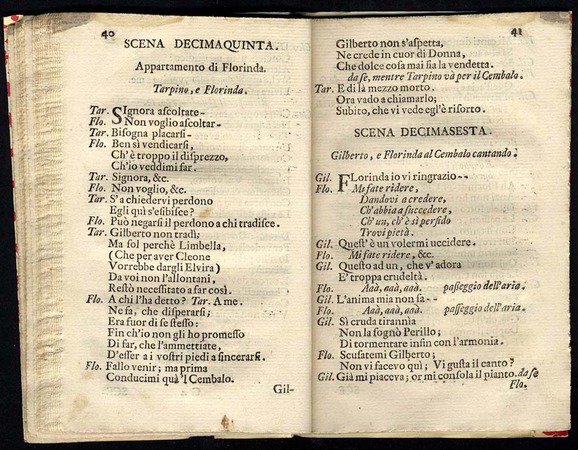 40
SCENA DECIMAQUINTA.
Appartamento di Florinda.
Tarpino, e Florinda.
Tar. Signora ascoltate-
Flo. Non voglio ascoltar-
Tar. Bisogna placarsi-
Flo. Ben sì vendicarsi,
Ch'è troppo il disprezzo,
Ch'io veddimi far.
Tar. Signora, &c.
Flo. Non voglio, &c.
Tar. S'a chiedervi perdono
Egli quì s'esibisce?
Flo. Può negarsi il perdono a chi tradisce.
Tar. Gilberto non tradì;
Ma sol perchè Limbella,
(Che per aver Cleone
Vorrebbe dargli Elvira)
Da voi non l'allontani,
Restò necessitato a far così.
Flo. A chi l'ha detto? Tar. A me.
Ne sa, che disperarsi;
Era fuor di se stesso:
Fin ch'io non gli ho promesso
Di far, che l'ammettiate,
D'esser a i vostri piedi a sincerarsi.
Flo. Fallo venir; ma prima
Conducimi quà 'l Cembalo.
Gil-
41
Gilberto non s'aspetta,
Ne crede in cuor di Donna,
Che dolce cosa mai sia la vendetta.
da se, mentre Tarpino và per il Cembalo.
Tar. E di là mezzo morto.
Ora vado a chiamarlo;
Subito, che vi vede egl'è risorto.
SCENA DECIMASESTA.
Gilberto, e Florinda al Cembalo cantando.
Gil. Florinda io vi ringrazio--
Flo. Mi fate ridere,
Dandovi a credere,
Ch'abbia a succedere,
Ch'un, ch'è sì perfido
Trovi pietà.
Gil. Quest' è un volermi uccidere.
Flo. Mi fate ridere, &c.
Gil. Questo ad un, che v'adora
E' troppa crudeltà.
Flo. Aaà, aaà, aaà. passeggio dell'aria.
Gil. L'anima mia non sa--
Flo. Aaà, aaà, aaà. passeggio dell'aria.
Gil. Sì cruda tirannìa
Non la sognò Perillo;
Di tormentare insin con l'armonia.
Flo. Scusatemi Gilberto;
Non vi facevo quì; Vi gusta il canto?
Gil. Già mi piaceva; or mi consola il pianto. da se
Flo.